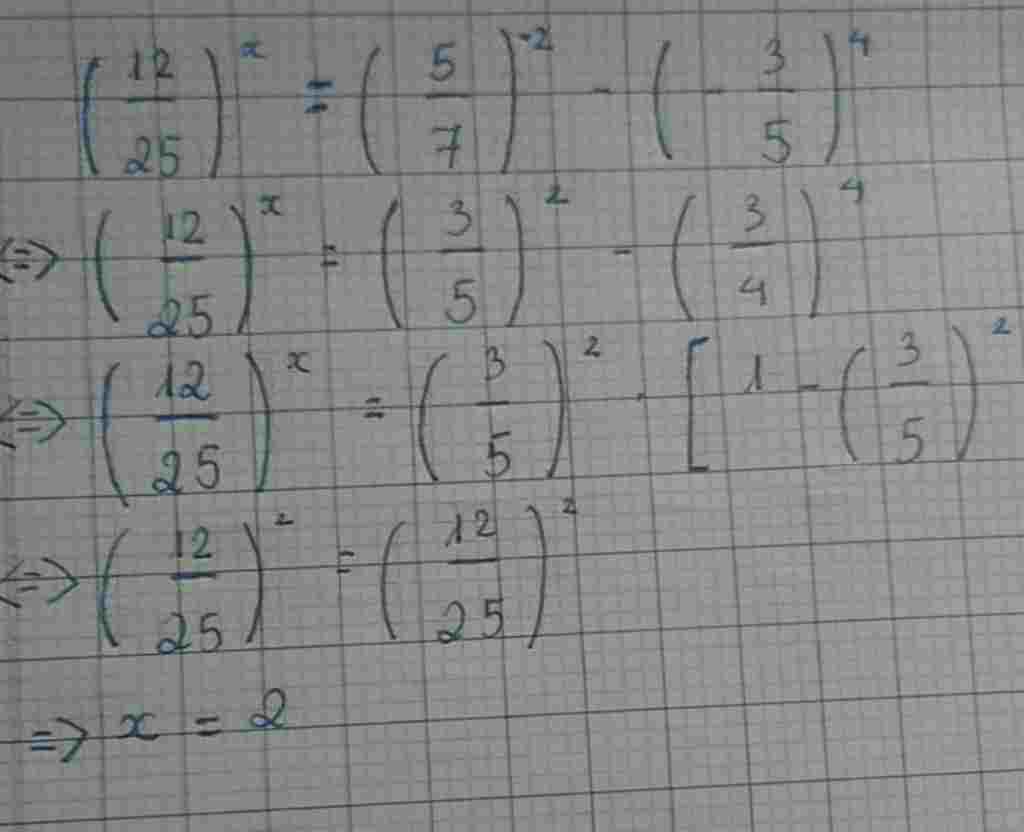 (12/25)^x = (5/7)^-2 - (-3/5)^4
<=> (12/25)^x = (3/5)^2 - (3/4)^4
<=> (12/25)^x = (3/5)^2 . [1 - (3/5)^2
<=> (12/25)^2 = (12/25)^2
=> x = 2